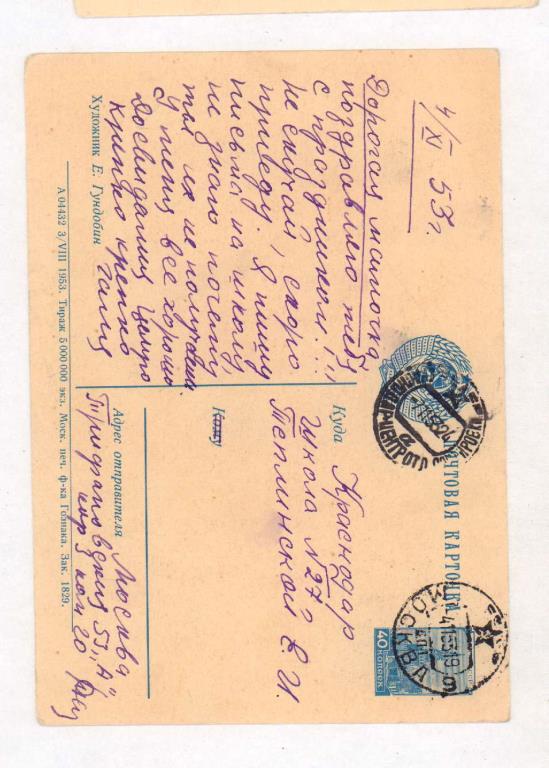 4/XI 53 г.
Дорогая мамочка
поздравляю тебя
с праздником!!!
Не скучай, скоро
приеду. Я пишу
письма на школу,
не знаю почему
ты их не получаешь.
У меня все хорошо
Досвидания целую
крепко крепко
Галя
Художник Е. Гундобин
А 04432 3/VIII 1953. Тираж 5 000 000 экз. Моск. печ. ф-ка Гознака. Зак. 1829.
ПОЧТОВАЯ КАРТОЧКА
40 КОПЕЕК
МОСКВА
Куда Краснодар
Школа N 27
Кому
Теплинской Е И.
Адрес отправителя
Москва
53 „А"
кор 3 ком 20